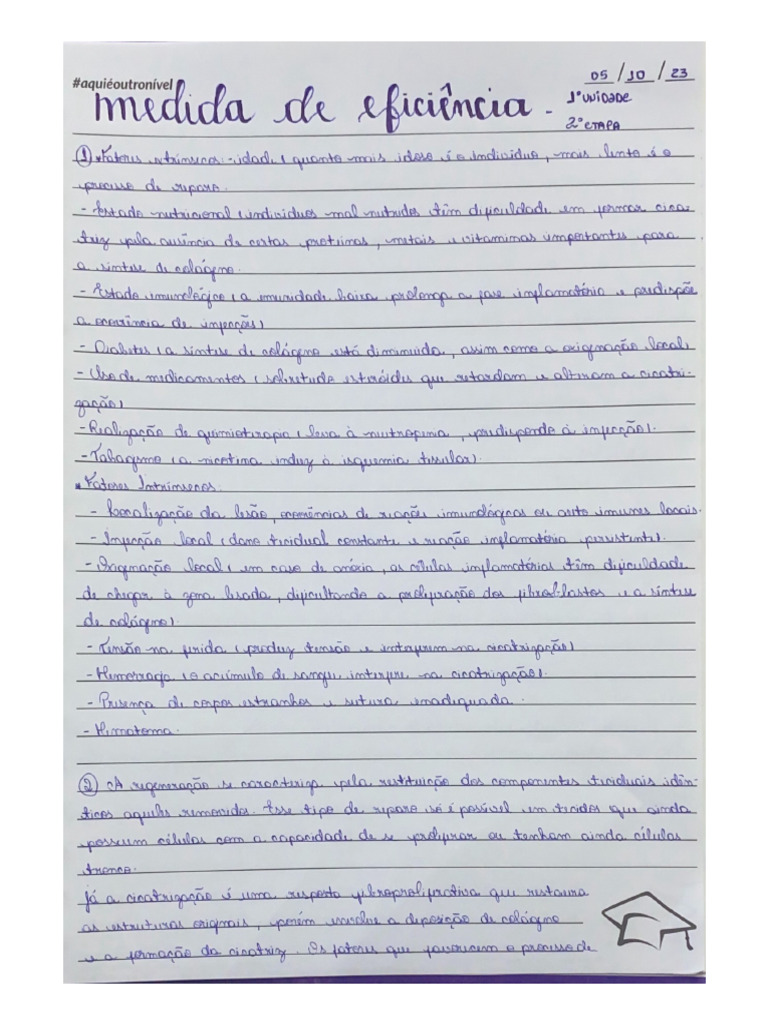 #aquiéoutronível
05/10/23
medida de eficiência -
1ª UNIDADE
2ª ETAPA
① • Fatores extrínsecos - idade ( quanto mais idoso é o individuo, mais lento é o
processo de reparo.
- Estado nutricional ( individuos mal nutridos têm dificuldade em formar cica-
triz pela ausência de certas proteinas, metais e vitaminas importantes para
a sintese de colágeno.
- Estado imunológico ( a imunidade baixa prolonga a fase inflamatória e predispõe
a ocorrência de infecções)
- Diabetes ( a sintese de colágeno está diminuida, assim como a oxigenação local.
- Uso de medicamentos ( sobretudo esteróides que retardam e alteram a cicatri-
zação)
- Realização de quimioterapia ( leva à neutropenia, predispondo à infecção).
- Tabagismo ( a nicotina induz à isquemia tissular).
• Fatores Intrínsecos.
- Localização da lesão, ocorrências de reações imunológicas ou auto imunes locais.
- Infecção local ( dano tecidual constante e reação inflamatória persistente).
- Oxigenação local ( em caso de anóxia, as células inflamatórias têm dificuldade
de chegar à zona lesada, dificultando a proliferação dos fibroblastos e a síntese
de colágeno).
- Tensão na ferida ( produz tensão e interferem na cicatrização)
- Hemorragia ( o acúmulo de sangue interfere na cicatrização).
- Presença de corpos estranhos e sutura inadequada.
- Hematoma.
② A regeneração se caracteriza pela restituição dos componentes teciduais idên-
ticos aqueles removidos. Esse tipo de reparo só é possível em tecidos que ainda
possuem células com a capacidade de se proliferar ou tenham ainda células
tronco.
Já a cicatrização é uma resposta fibroproliferativa que restaura
as estruturas originais, porém envolve a deposição de colágeno
e a formação da cicatriz. Os fatores que favorecem o processo de